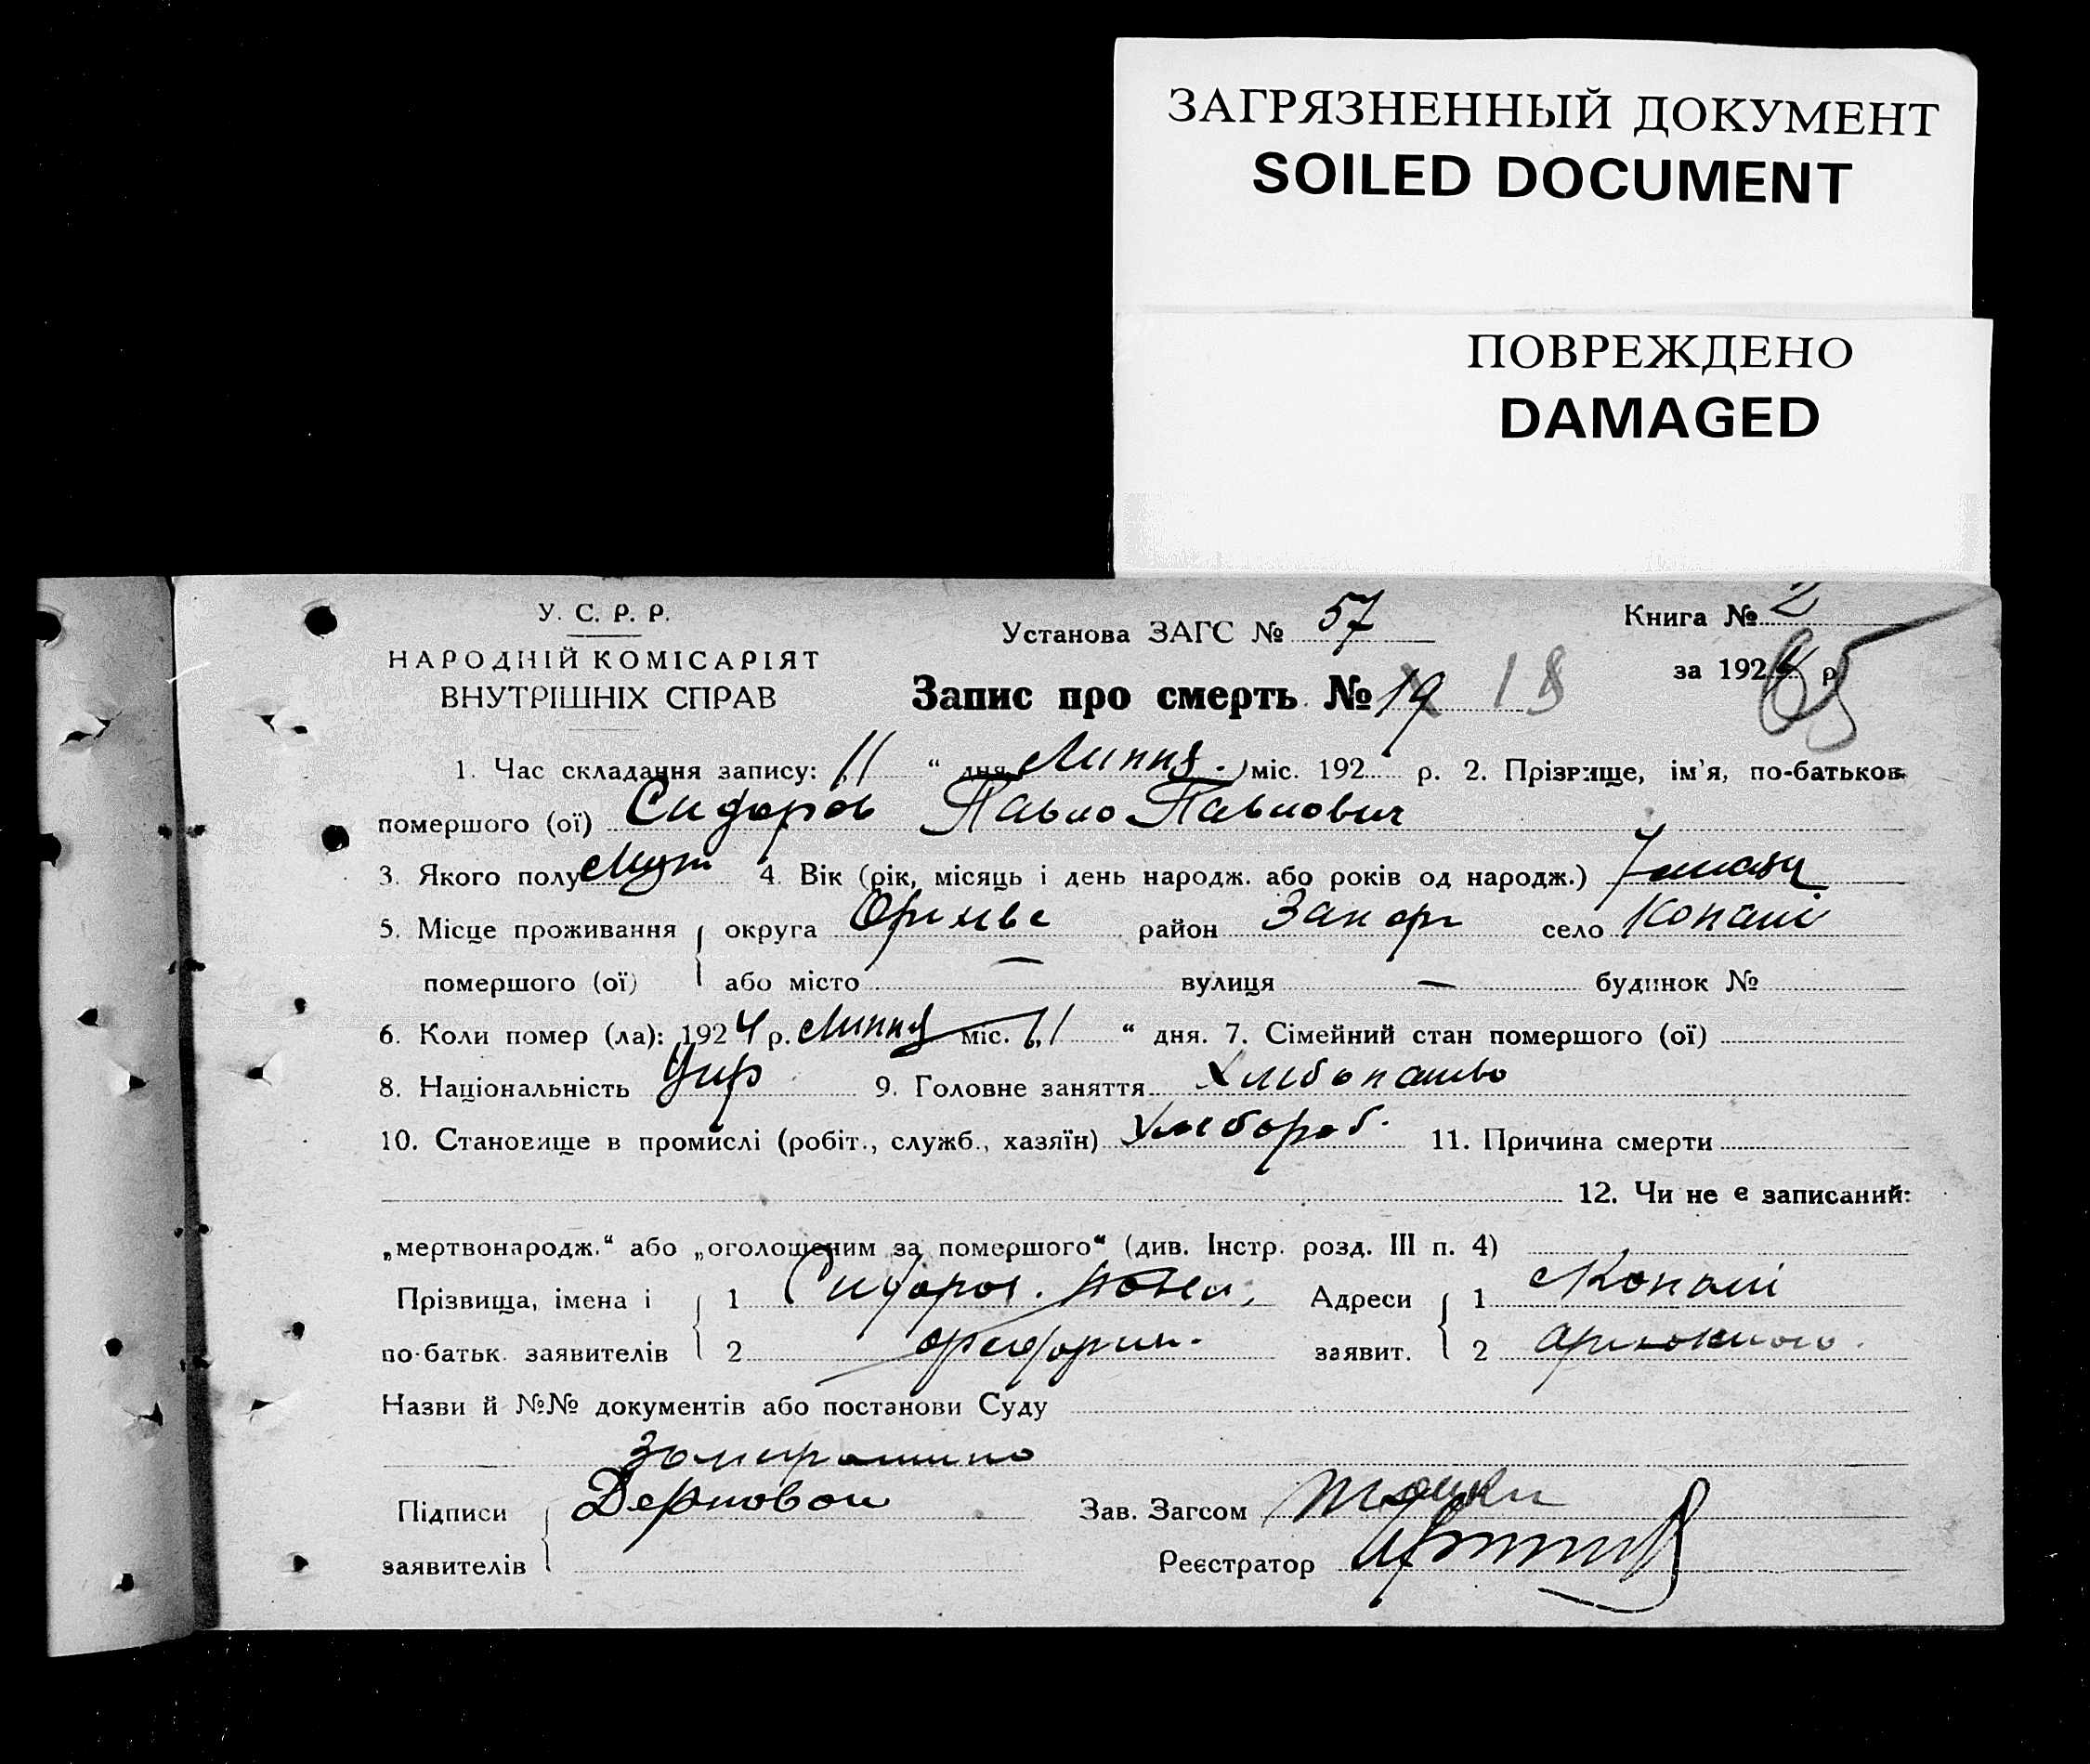 ЗАГРЯЗНЕННЫЙ ДОКУМЕНТ
SOILED DOCUMENT
ПОВРЕЖДЕНО
DAMAGED
У. С. Р. Р.
НАРОДНІЙ КОМІСАРІЯТ
ВНУТРІШНІХ СПРАВ
Установа ЗАГС № 57
Книга № 2
за 192 р. 65
Запис про смерть № 19 18
1. Час складання запису: „11 “ дня Липня міс. 192 р. 2. Прізвище, ім’я, по-батьков.
помершого (ої) Сидоров Павло Павлович
3. Якого полу Муж 4. Вік (рік, місяць і день народж. або років од народж.)
5. Місце проживання округа район Запор село Копані
помершого (ої) або місто — вулиця — будинок №
6. Коли помер (ла): 1924 р. Липня міс. „11 “ дня. 7. Сімейний стан помершого (ої)
8. Національність Укр 9. Головне заняття
10. Становище в промислі (робіт., служб., хазяїн) Хлібороб. 11. Причина смерти
12. Чи не є записаний:
„мертвонародж.“ або „оголошеним за помершого“ (див. Інстр. розд. III п. 4)
Прізвища, імена і 1 Сидоров. Адреси 1 Копані
по-батьк. заявителів 2 заявит. 2
Назви й №№ документів або постанови Суду
Підписи Зав. Загсом
заявителів Реєстратор